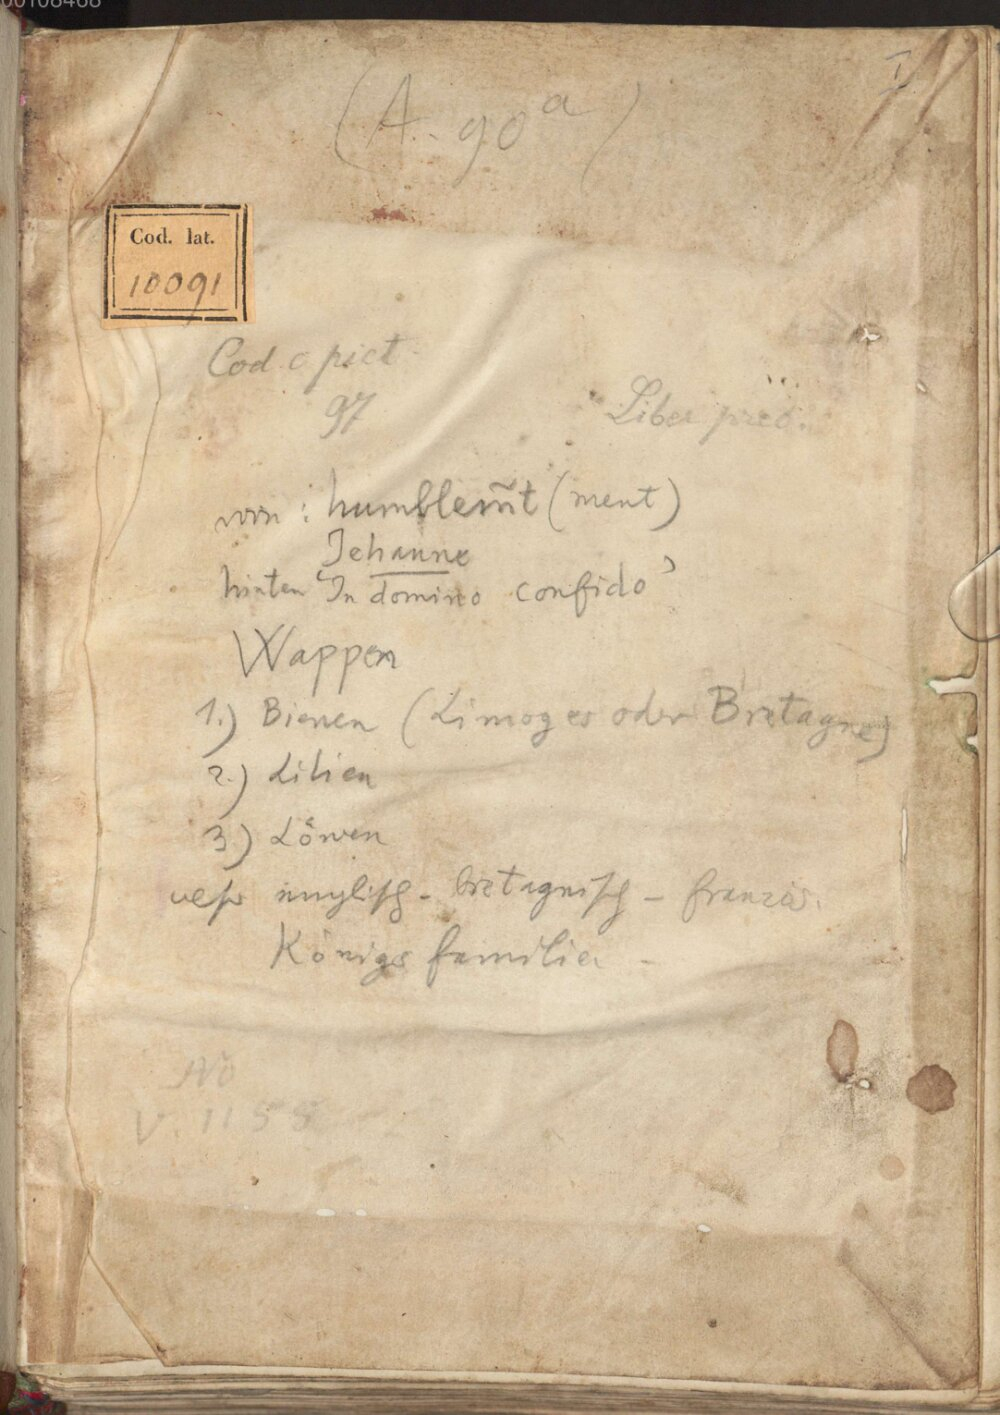 00108468
(A. 90 a)
I
Cod. lat.
10091
Cod. c. pict.
97
Liber prec.
vorn: humblem̃t (ment)
Jehanne
hinten "In domino confido"
Wappen
1.) Bienen (Limoges oder Bretagne)
2.) Lilien
3.) Löwen
englisch - bretagnisch - französ.
Königsfamilie -
No
V. 1155